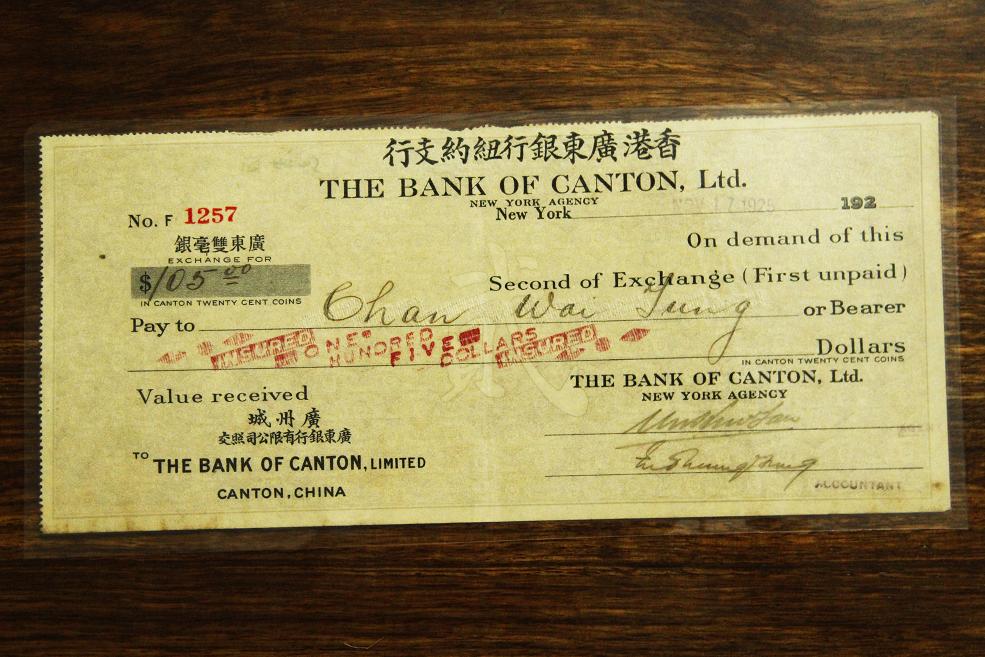 行支約紐行銀東廣港香
THE BANK OF CANTON, Ltd.
NEW YORK AGENCY
No. F 1257
New York NOV 17 1925 192
銀毫雙東廣
EXCHANGE FOR
$105.00
IN CANTON TWENTY CENT COINS
On demand of this
Second of Exchange (First unpaid)
Pay to Chan Wai Tung or Bearer
INSURED ONE HUNDRED FIVE DOLLARS INSURED
Dollars
IN CANTON TWENTY CENT COINS
貳
Value received
城州廣
交照司公限有行銀東廣
TO THE BANK OF CANTON, LIMITED
CANTON, CHINA
THE BANK OF CANTON, Ltd.
NEW YORK AGENCY
ACCOUNTANT